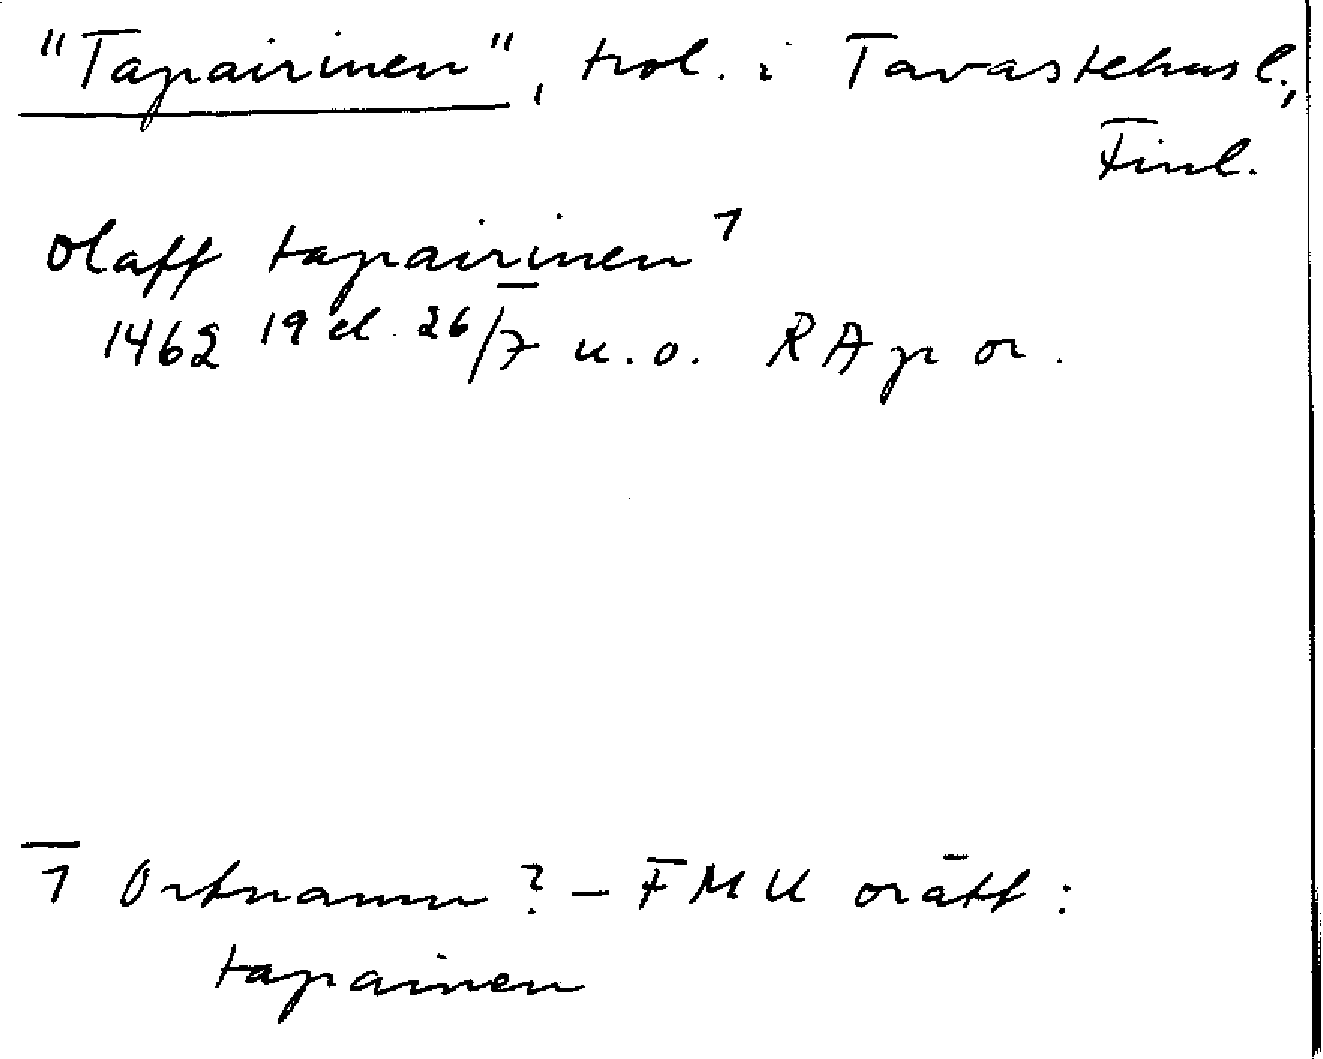 "Tapairinen", trol. i Tavastehusl.,
Finl.
Olaff tapairinen 1
1462 19 el. 26/7 u.o. RAp or.
1 Ortnamn? – FMU orätt:
tapainen